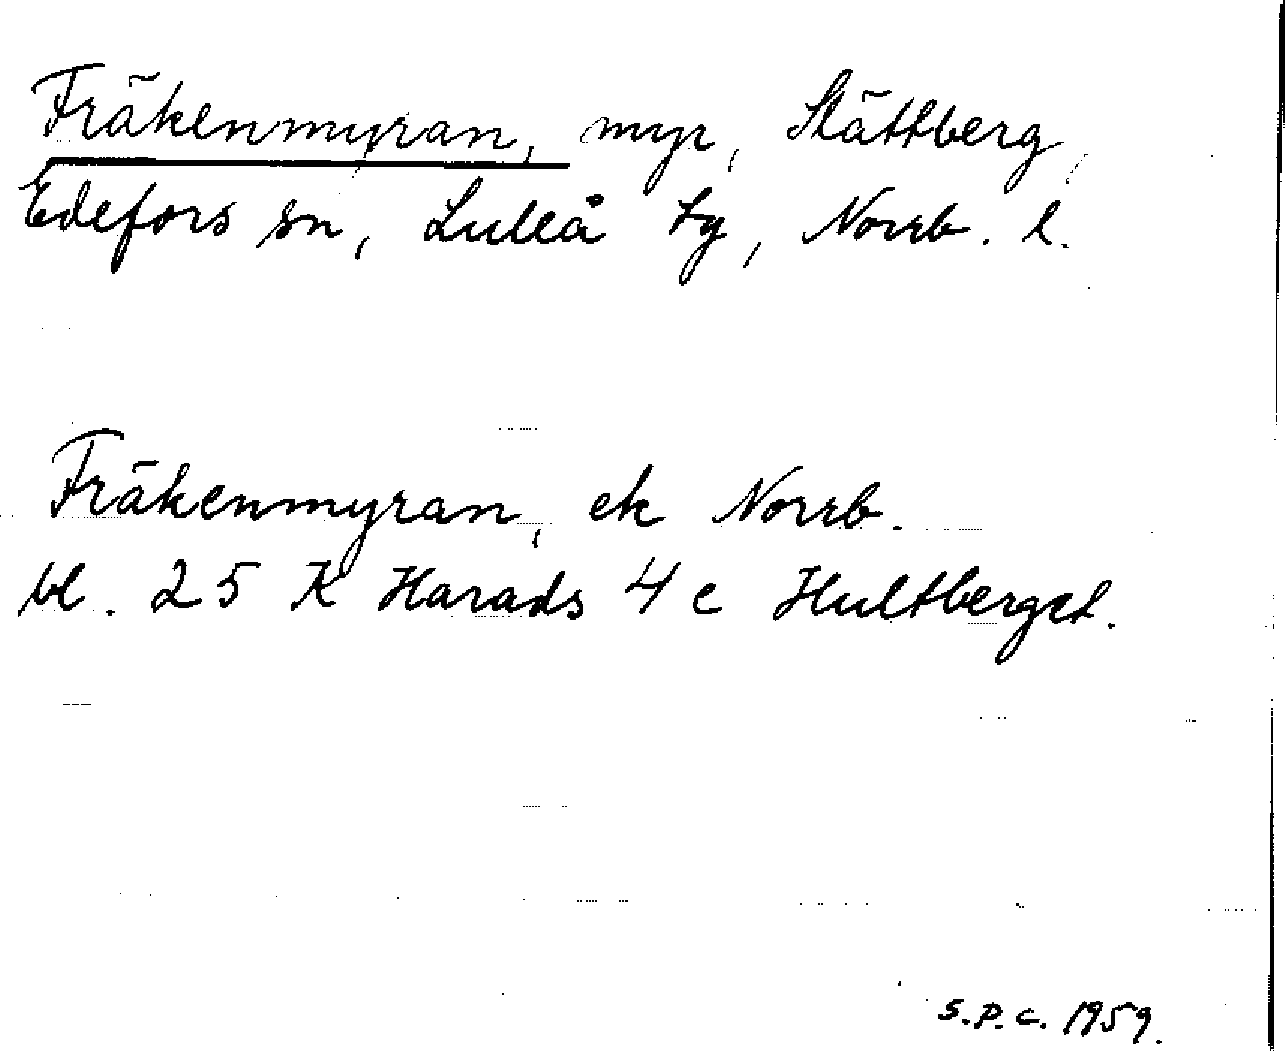 Fräkenmyran, myr, Slättberg,
Edefors sn, Luleå tg, Norrb. l.
Fräkenmyran, ek Norrb.
bl. 25 K Harads 4 c Hultberget.
S.P.C. 1959.